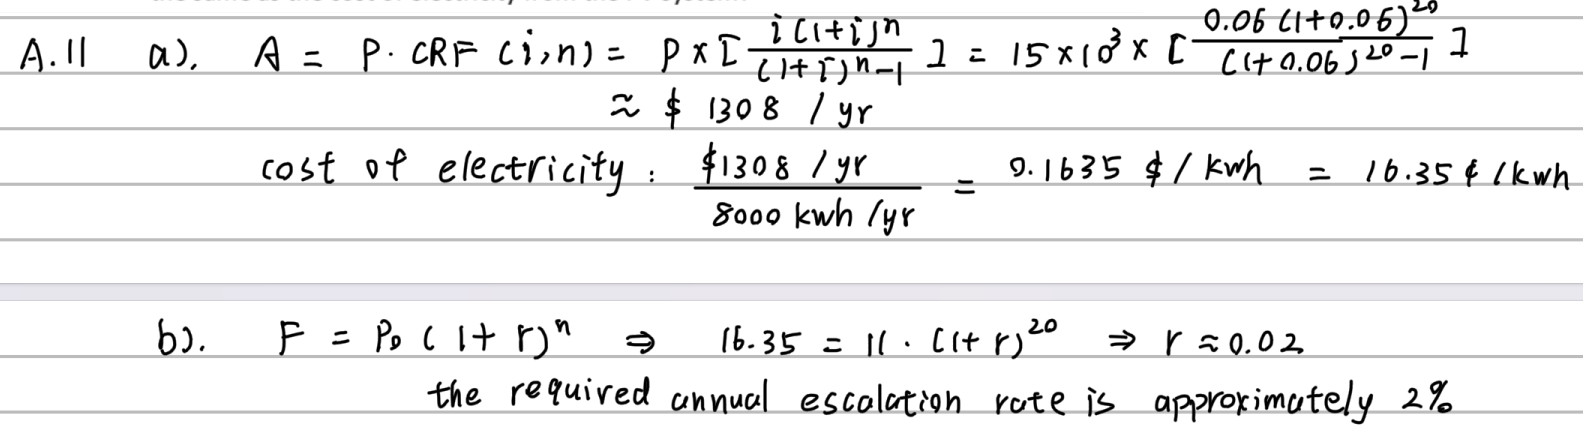 A.11 a). A = P · CRF (i,n) = P × [ i(1+i)^n / (1+i)^n-1 ] = 15×10^3 × [ 0.06 (1+0.06)^20 / (1+0.06)^20-1 ]
≈ $ 1308 / yr
cost of electricity : $1308 / yr / 8000 kwh /yr = 0.1635 $ / kwh = 16.35 ¢ / kwh
b). F = P₀ ( 1+ r)^n ⇒ 16.35 = 11 · (1+ r)^20 ⇒ r ≈ 0.02
the required annual escalation rate is approximately 2%